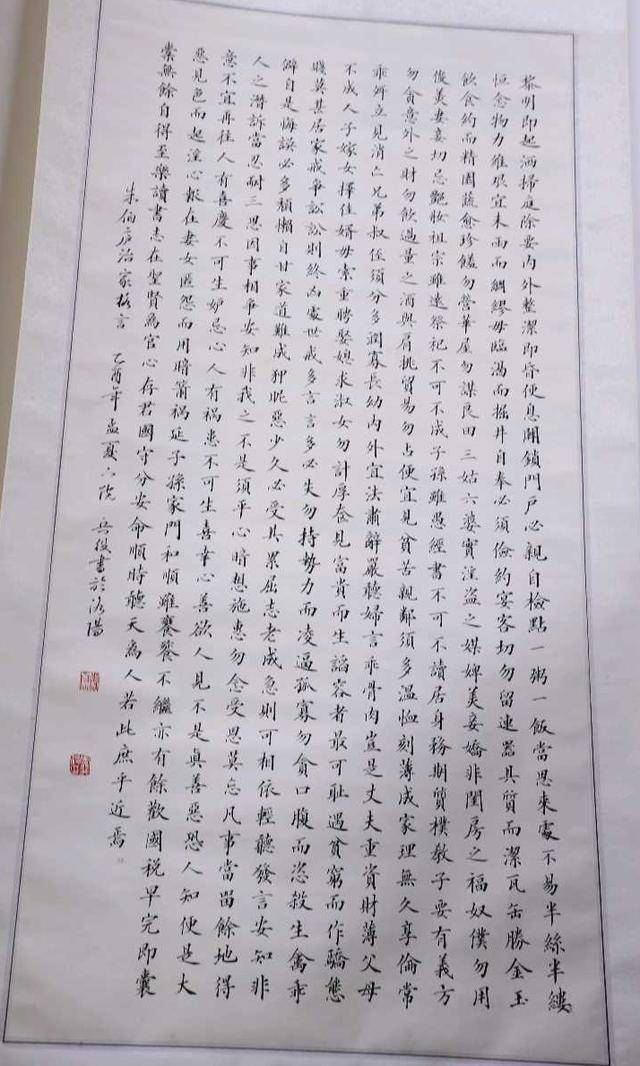 黎明即起洒掃庭除要內外整潔即昏便息關鎖門戶必親自檢點一粥一飯當思來處不易半絲半縷
恒念物力維艰宜未雨而綢繆毋臨渴而掘井自奉必須儉約宴客切勿留連器具質而潔瓦缶勝金玉
飲食約而精園蔬愈珍饈勿營華屋勿謀良田三姑六婆實淫盜之媒婢美妾嬌非閨房之福奴僕勿用
俊美妻妾切忌艷妝祖宗雖遠祭祀不可不成子孫雖愚經書不可不讀居身務期質樸教子要有義方
勿貪意外之財勿飲過量之酒與肩挑貿易勿占便宜見貧苦親鄰須多溫恤刻薄成家理無久享倫常
乖舛立見消亡兄弟叔侄須分多潤寡長幼內外宜法肅辭嚴聽婦言乖骨肉豈是丈夫重資財薄父母
不成人子嫁女擇佳婿毋索重聘娶媳求淑女勿計厚奩見富貴而生諂容者最可耻遇貧窮而作驕態
賤莫甚居家戒爭訟訟則終凶處世戒多言言多必失勿持勢力而凌逼孤寡勿貪口腹而恣殺生禽乖
僻自是悔誤必多頹懶自甘家道難成狎昵惡少久必受其累屈志老成急則可相依輕聽發言安知非
人之潛訴當忍耐三思因事相爭安知非我之不是須平心暗想施惠勿念受恩莫忘凡事當留餘地得
意不宜再往人有喜慶不可生妒忌心人有禍患不可生喜幸心善欲人見不是真善惡恐人知便是大
惡見色而起淫心報在妻女匿怨而用暗箭禍延子孫家門和順雖饔飧不繼亦有餘歡國稅早完即囊
橐無餘自得至樂讀書志在聖賢為官心存君國守分安命順時聽天為人若此庶乎近焉
朱伯廬治家格言 乙酉年孟夏 書於洛陽